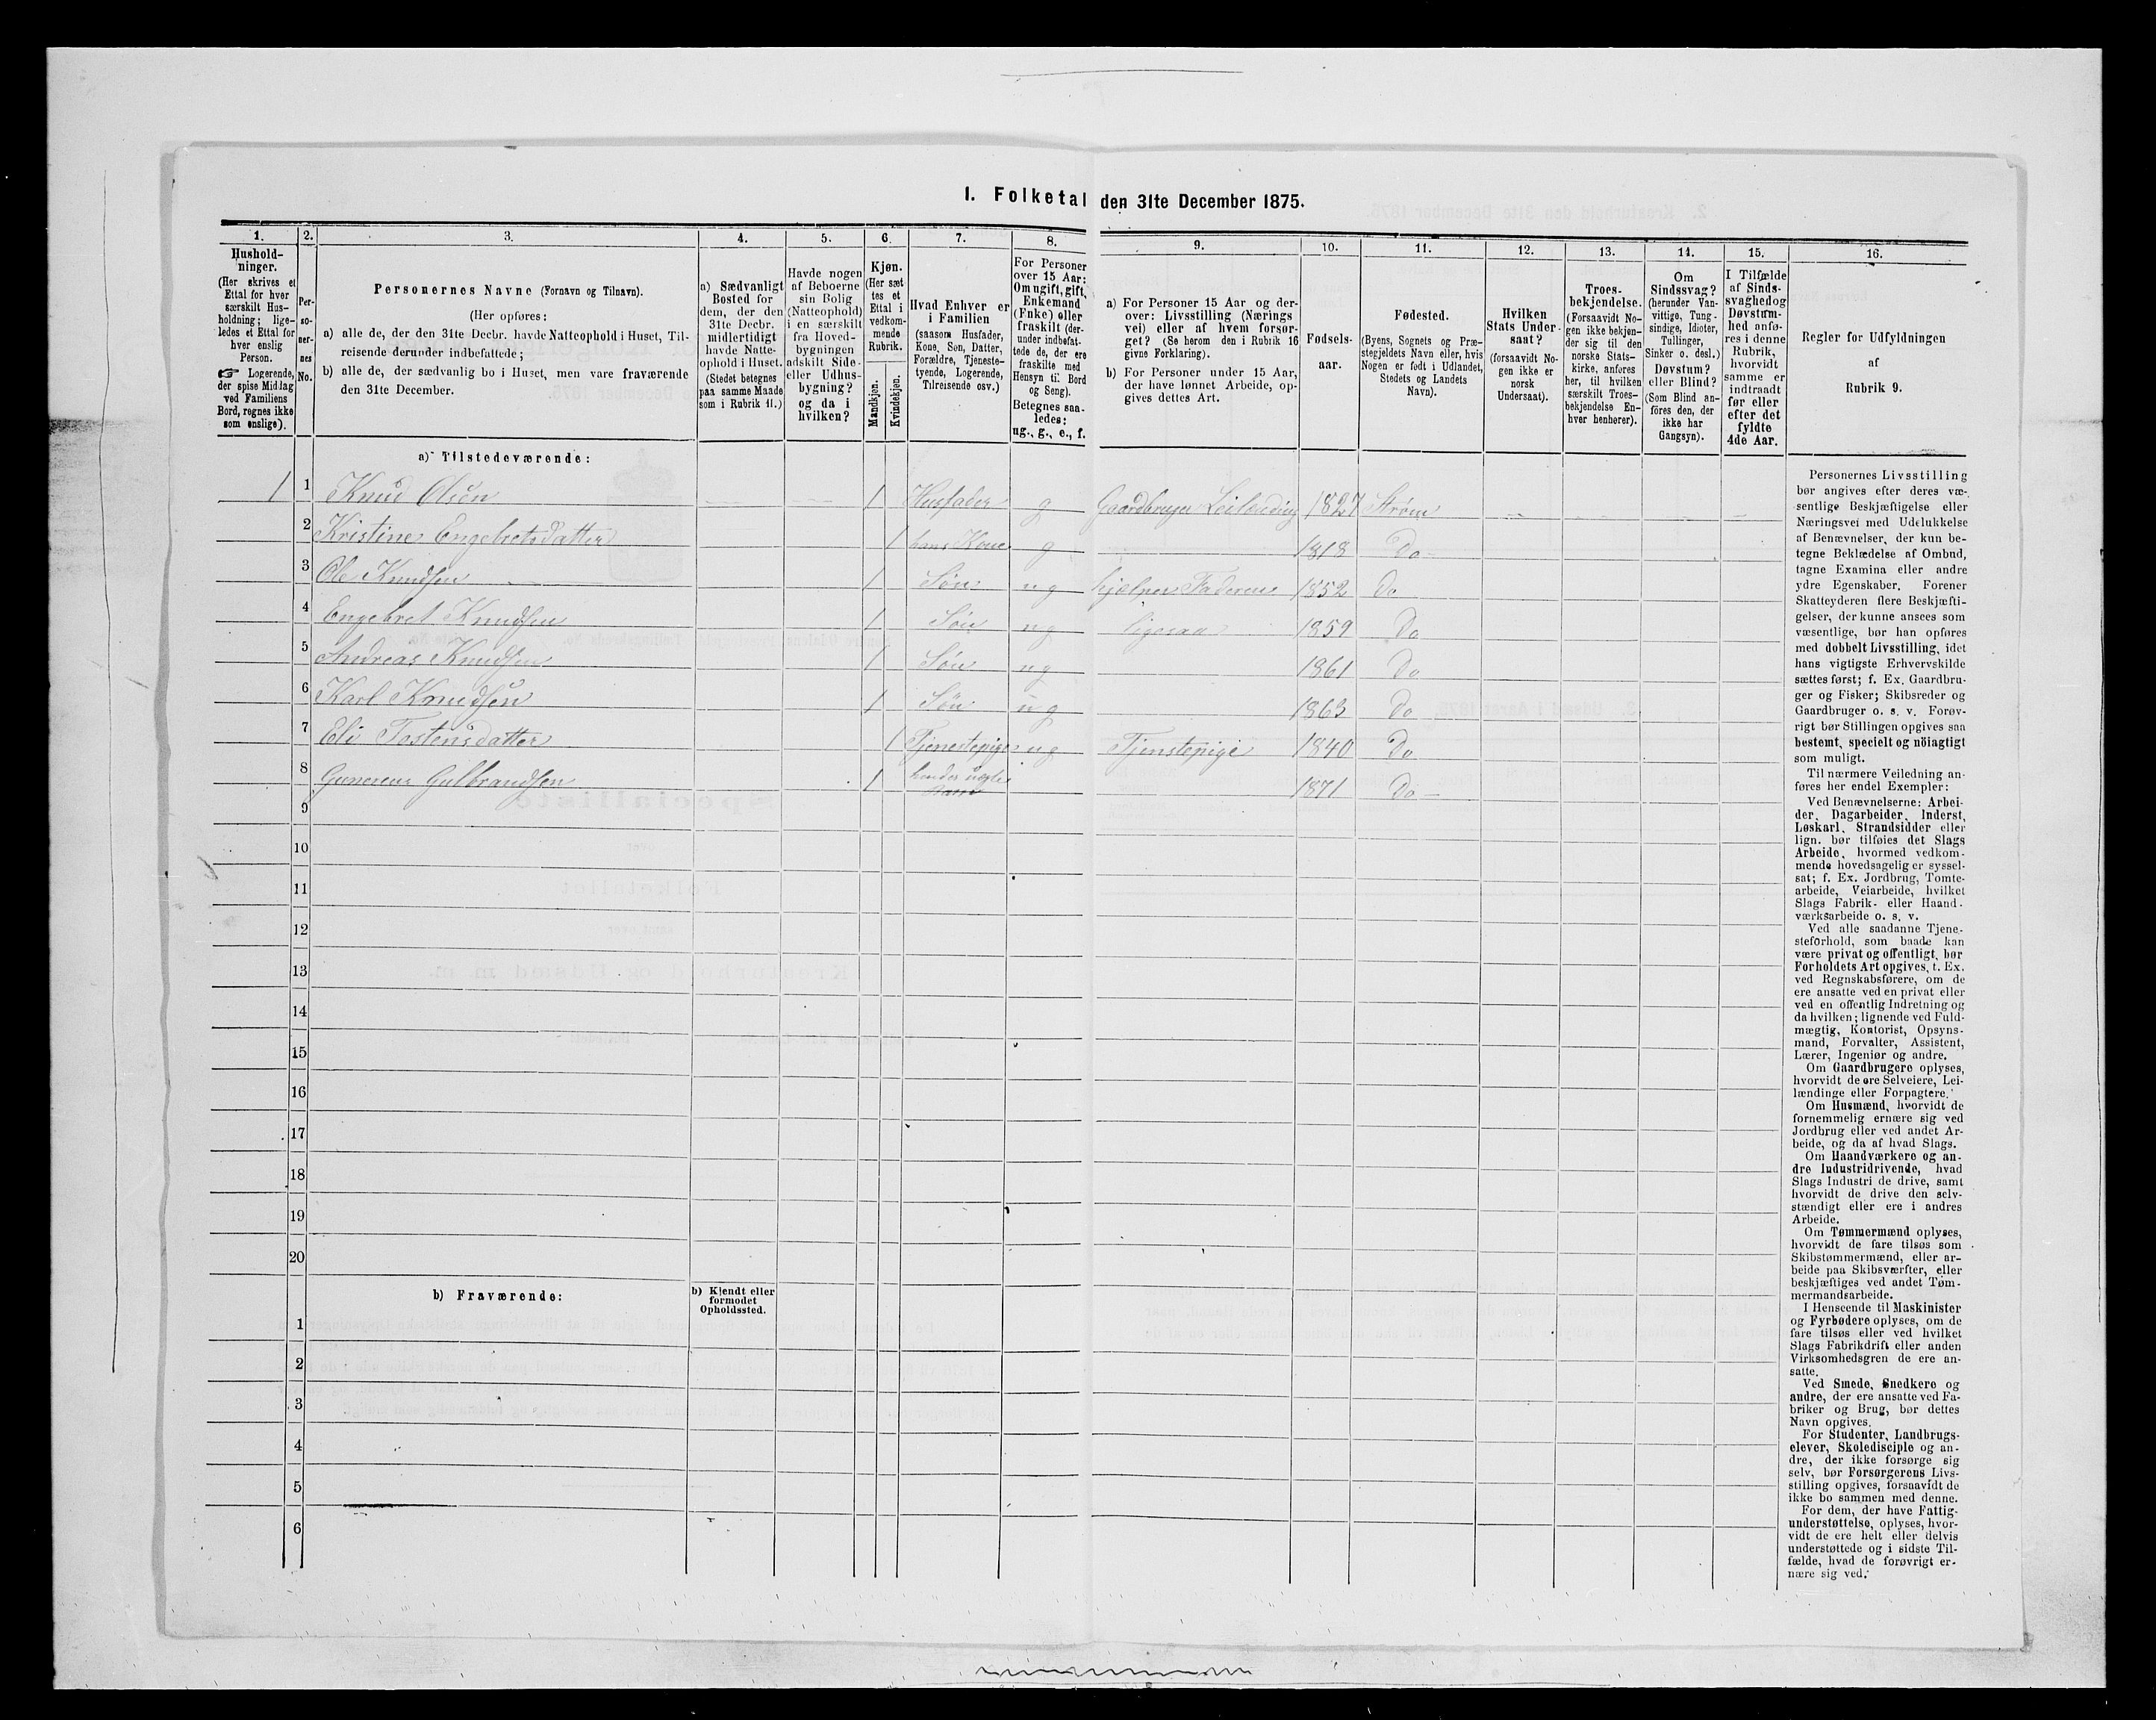 I. Folketal den 31te December 1875.
1. 2. 3. 4. 5. 6. 7. 8. 9. 10. 11. 12. 13. 14. 15. 16.
Hushold-
ninger.
(Her skrives et
Ettal for hver
særskilt Hus-
holdning; lige-
ledes et Ettal for
hver enslig
Person.
☞ Logerende,
der spise Middag
ved Familiens
Bord, regnes ikke
som enslige).
Per-
so-
ner-
nes
No.
Personernes Navne (Fornavn og Tilnavn).
(Her opføres:
a) alle de, der den 31te Decbr. havde Natteophold i Huset, Til-
reisende derunder indbefattede;
b) alle de, der sædvanlig bo i Huset, men vare fraværende
den 31te December.
a) Sædvanligt
Bosted for
dem, der den
31te Decbr.
midlertidigt
havde Natte-
ophold i Huset.
(Stedet betegnes
paa samme Maade
som i Rubrik 11.)
Havde nogen
af Beboerne
sin Bolig
(Natteophold)
i en særskilt
fra Hoved-
bygningen
adskilt Side-
eller Udhus-
bygning?
og da i
hvilken?
Kjøn.
(Her sæt
tes et
Ettal i
vedkom-
mende
Rubrik.
Mandkjøn.
Kvindekjøn.
Hvad Enhver er
i Familien
(saasom Husfader,
Kone, Søn, Datter,
Forældre, Tjeneste-
tyende, Logerende,
Tilreisende osv.)
For Personer
over 15 Aar:
Om ugift, gift,
Enkemand
(Enke) eller
fraskilt (der-
under indbefat-
tede de, der ere
fraskilte med
Hensyn til Bord
og Seng).
Betegnes saa-
ledes:
ug., g., e., f.
a) For Personer 15 Aar og der-
over: Livsstilling (Nærings
vei) eller af hvem forsør-
get? (Se herom den i Rubrik 16
givne Forklaring).
b) For Personer under 15 Aar,
der have lønnet Arbeide, op-
gives dettes Art.
Fødsels-
aar.
Fødested.
(Byens, Sognets og Præ-
stegjeldets Navn eller, hvis
Nogen er født i Udlandet,
Stedets og Landets
Navn).
Hvilken
Stats Under-
saat?
(forsaavidt No-
gen ikke er
norsk
Undersaat).
Troes-
bekjendelse.
(Forsaavidt No-
gen ikke bekjen-
der sig til den
norske Stats-
kirke, anføres
her, til hvilken
særskilt Troes-
bekjendelse En-
hver henhører).
Om
Sindssvag?
(herunder Van-
vittige, Tung-
sindige, Idioter,
Tullinger,
Sinker o. desl.)
Døvstum?
eller Blind?
(Som Blind an-
føres den, der
ikke har
Gangsyn).
I Tilfælde
af Sinds-
svaghed og
Døvstum-
hed anfø-
res i denne
Rubrik,
hvorvidt
samme er
indtraadt
før eller
efter det
fyldte
4de Aar.
Regler for Udfyldningen
af
Rubrik 9.
a) Tilstedeværende:
1 1 Knud Olsen 1 Husfader g Gaardbruger Leilending 1827 Strøm
2 Kristine Engebretsdatter 1 hans Kone g 1818 Do
3 Ole Knudsen 1 Søn ug hjelper Faderen 1852 Do
4 Engebret Knudsen 1 Søn ug ligesaa 1859 Do
5 Andreas Knudsen 1 Søn ug 1861 Do
6 Karl Knudsen 1 Søn ug 1863 Do
7 Eli Tostensdatter 1 Tjenestepige ug Tjenstepige 1840 Do
8 Gunerius Gulbrandsen 1 hendes uægte Barn 1871 Do
9
10
11
12
13
14
15
16
17
18
19
20
b) Fraværende:
b) Kjendt eller
formodet
Opholdssted.
1
2
3
4
5
6
Personernes Livsstilling
bør angives efter deres væ-
sentlige Beskjæftigelse eller
Næringsvei med Udelukkelse
af Benævnelser, der kun be-
tegne Beklædelse af Ombud,
tagne Examina eller andre
ydre Egenskaber. Forener
Skatteyderen flere Beskjæfti-
gelser, der kunne ansees som
væsentlige, bør han opføres
med dobbelt Livsstilling, idet
hans vigtigste Erhvervskilde
sættes først; f. Ex. Gaardbru-
ger og Fisker; Skibsreder og
Gaardbruger o. s. v. Forøv-
rigt bør Stillingen opgives saa
bestemt, specielt og nöiagtigt
som muligt.
Til nærmere Veiledning an-
føres her endel Exempler:
Ved Benævnelserne: Arbei-
der, Dagarbeider, Inderst,
Løskarl, Strandsidder eller
lign. bør tilføies det Slags
Arbeide, hvormed vedkom-
mende hovedsagelig er syssel-
sat; f. Ex. Jordbrug, Tomte-
arbeide, Veiarbeide, hvilket
Slags Fabrik- eller Haand-
værksarbeide o. s. v.
Ved alle saadanne Tjene-
steforhold, som baade kan
være privat og offentligt, bør
Forholdets Art opgives, t. Ex.
ved Regnskabsførere, om de
ere ansatte ved en privat eller
ved en offentlig Indretning og
da hvilken; lignende ved Fuld-
mægtig, Kontorist, Opsyns-
mand, Forvalter, Assistent,
Lærer, Ingeniør og andre.
Om Gaardbrugere oplyses,
hvorvidt de ere Selveiere, Lei-
lændinge eller Forpagtere.
Om Husmænd, hvorvidt de
fornemmelig ernære sig ved
Jordbrug eller ved andet Ar-
beide, og da af hvad Slags.
Om Haandværkere og an-
dre Industridrivende, hvad
Slags Industri de drive, samt
hvorvidt de drive den selv-
stændigt eller ere i andres
Arbeide.
Om Tømmermænd oplyses,
hvorvidt de fare tilsøs som
Skibstømmermænd, eller ar-
beide paa Skibsværfter, eller
beskjæftiges ved andet Tøm-
mermandsarbeide.
I Henseende til Maskinister
og Fyrbødere oplyses, om de
fare tilsøs eller ved hvilket
Slags Fabrikdrift eller anden
Virksomhedsgren de ere an-
satte.
Ved Smede, Snedkere og
andre, der ere ansatte ved Fa-
briker og Brug, bør dettes
Navn opgives.
For Studenter, Landbrugs-
elever, Skoledisciple og an-
dre, der ikke forsørge sig
selv, bør Forsørgerens Livs-
stilling opgives, forsaavidt de
ikke bo sammen med denne.
For dem, der have Fattig-
understøttelse, oplyses, hvor-
vidt de ere helt eller delvis
understøttede og i sidste Til-
fælde, hvad de forøvrigt er-
nære sig ved.